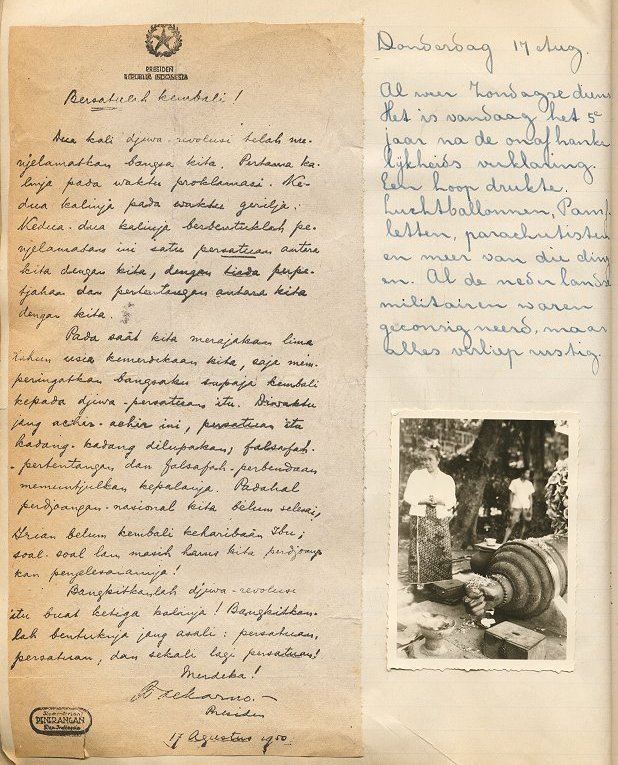 PRESIDEN
REPUBLIK INDONESIA
Bersatulah kembali!
Dua kali djiwa-revolusi telah me-
njelamatkan bangsa kita. Pertama ka-
linja pada waktu proklamasi. Ke-
dua kalinja pada waktu gerilja.
Kedua-dua kalinja berbentuklah pe-
njelamatan ini satu persatuan antara
kita dengan kita, dengan tiada perpe-
tjahan dan pertentangan antara kita
dengan kita.
Pada saät kita merajakan lima
tahun usia kemerdekaan kita, saja mem-
peringatkan bangsaku supaja kembali
kepada djiwa-persatuan itu. Diwaktu
jang achir-achir ini, persatuan itu
kadang-kadang dilupakan; falsafah-
-pertentangan dan falsafah-perbedaan
memuntjulkan kepalanja. Padahal
perdjoangan-nasional kita belum selesai;
Irian belum kembali keharibaän Ibu;
soal-soal lain masih harus kita perdjoang-
kan penjelesaiannja!
Bangkitkanlah djiwa-revolusi
itu buat ketiga kalinja! Bangkitkan-
lah bentuknja jang asali: persatuan,
persatuan, dan sekali lagi persatuan!
Merdeka!
Soekarno.-
Presiden
17 Agustus 1950.
Kementerian
PENERANGAN
Donderdag 17 Aug.
Al weer Zondagse dienst
Het is vandaag het 5e
jaar na de onafhanke
lijkheids verklaring.
Een hoop drukte.
Luchtballonnen, Pamf-
letten, parachutisten
en meer van die ding
en. Al de nederlandse
militairen waren
geconsigneerd, maar
alles verliep rustig.